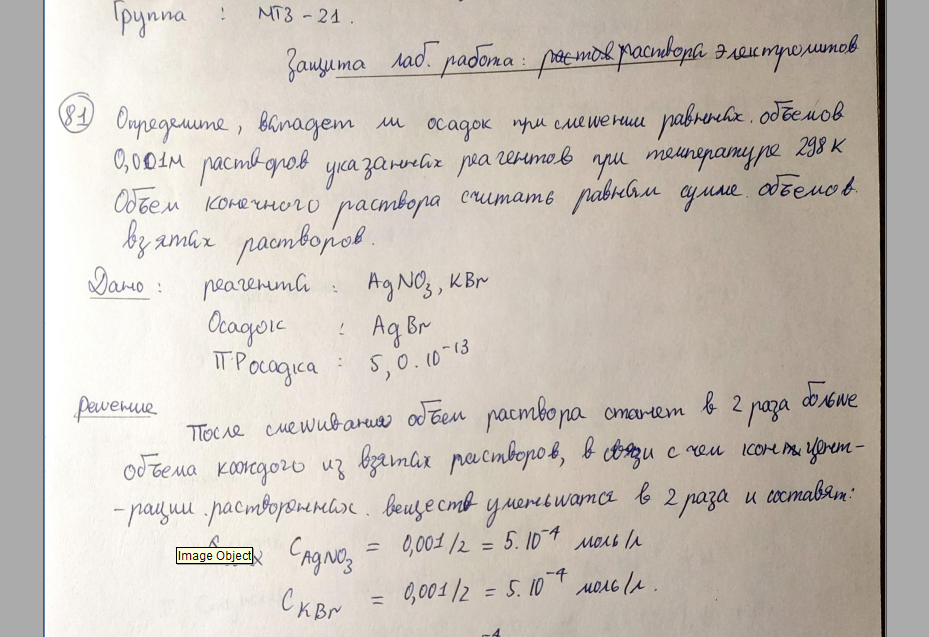 Группа : МТЗ-21.
Защита лаб. работа: раствора электролитов
81 Определите, выпадет ли осадок при смешении равных объемов
0,001м растворов указанных реагентов при температуре 298 К
Объем конечного раствора считать равным сумме объемов
взятых растворов.
Дано: реагенты : AgNO₃, KBr
Осадок : AgBr
ПР осадка : 5,0·10⁻¹³
Решение
После смешивания объем раствора станет в 2 раза больше
объема каждого из взятых растворов, в связи с чем концент-
-рации растворенных веществ уменьшатся в 2 раза и составят:
Image Object
C AgNO₃ = 0,001/2 = 5·10⁻⁴ моль/л
C KBr = 0,001/2 = 5·10⁻⁴ моль/л.